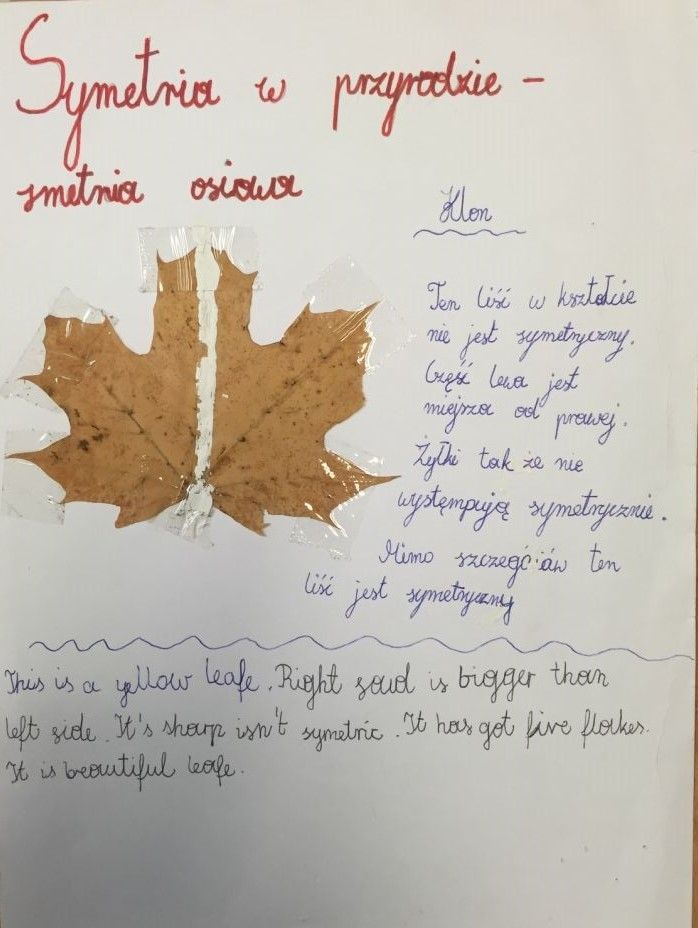 Symetria w przyrodzie -
smetria osiowa
Klon
Ten liść w kształcie
nie jest symetryczny.
Część lewa jest
miejsza od prawej.
Żyłki tak że nie
występują symetrycznie.
Mimo szczegółów ten
liść jest symetryczny
This is a yellow leafe. Right said is bigger than
left side. It's sharp isn't symetric. It has got five flakes.
It is beautiful leafe.